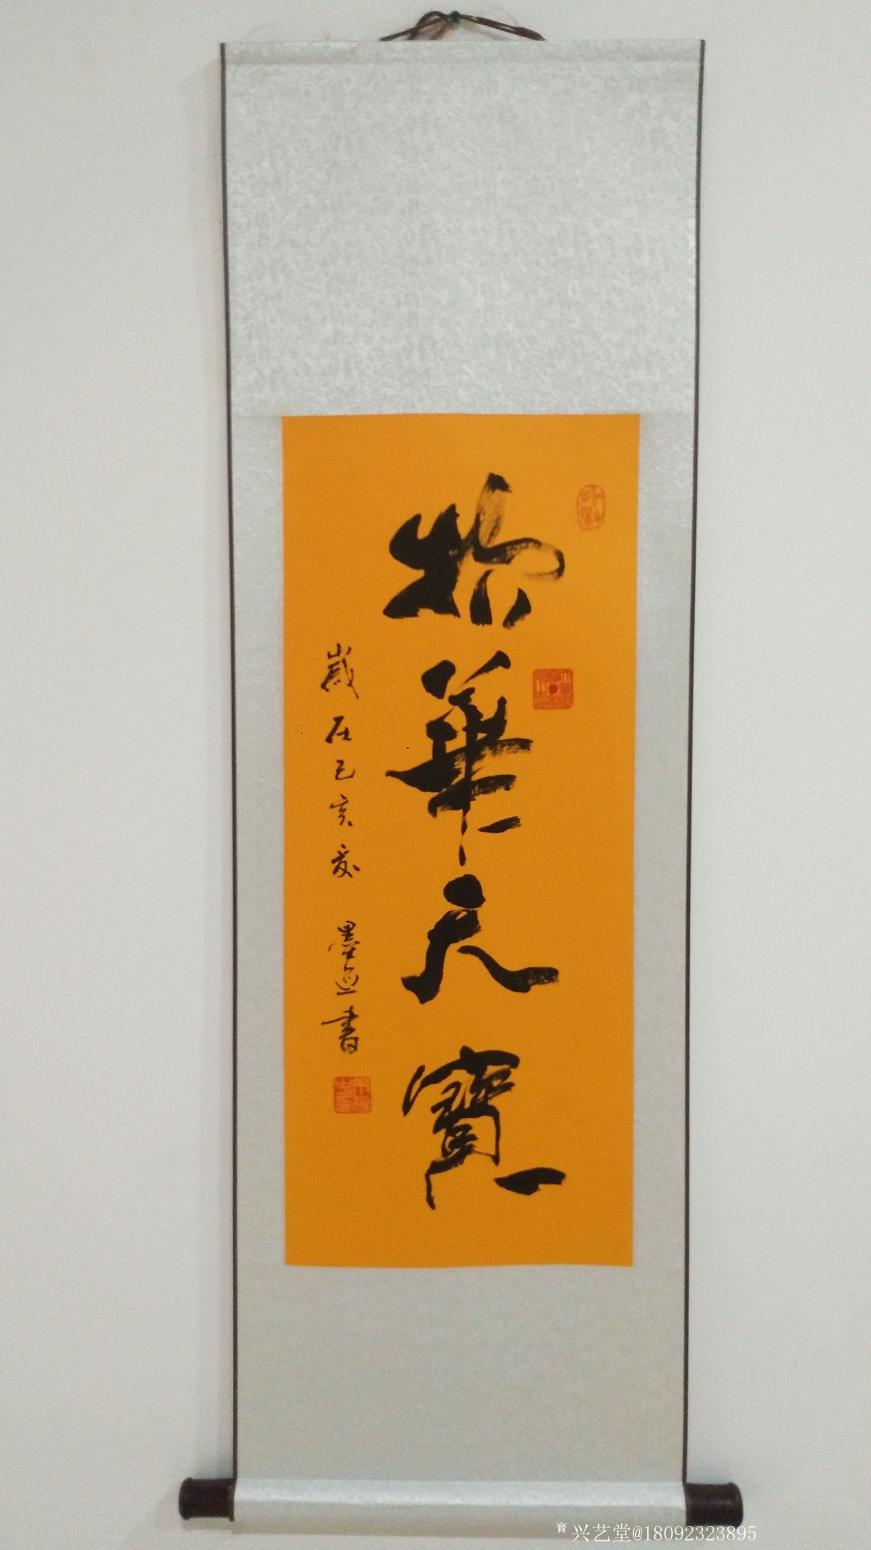 物華天寶
歲在己亥夏 墨迹書
兴艺堂@18092323895